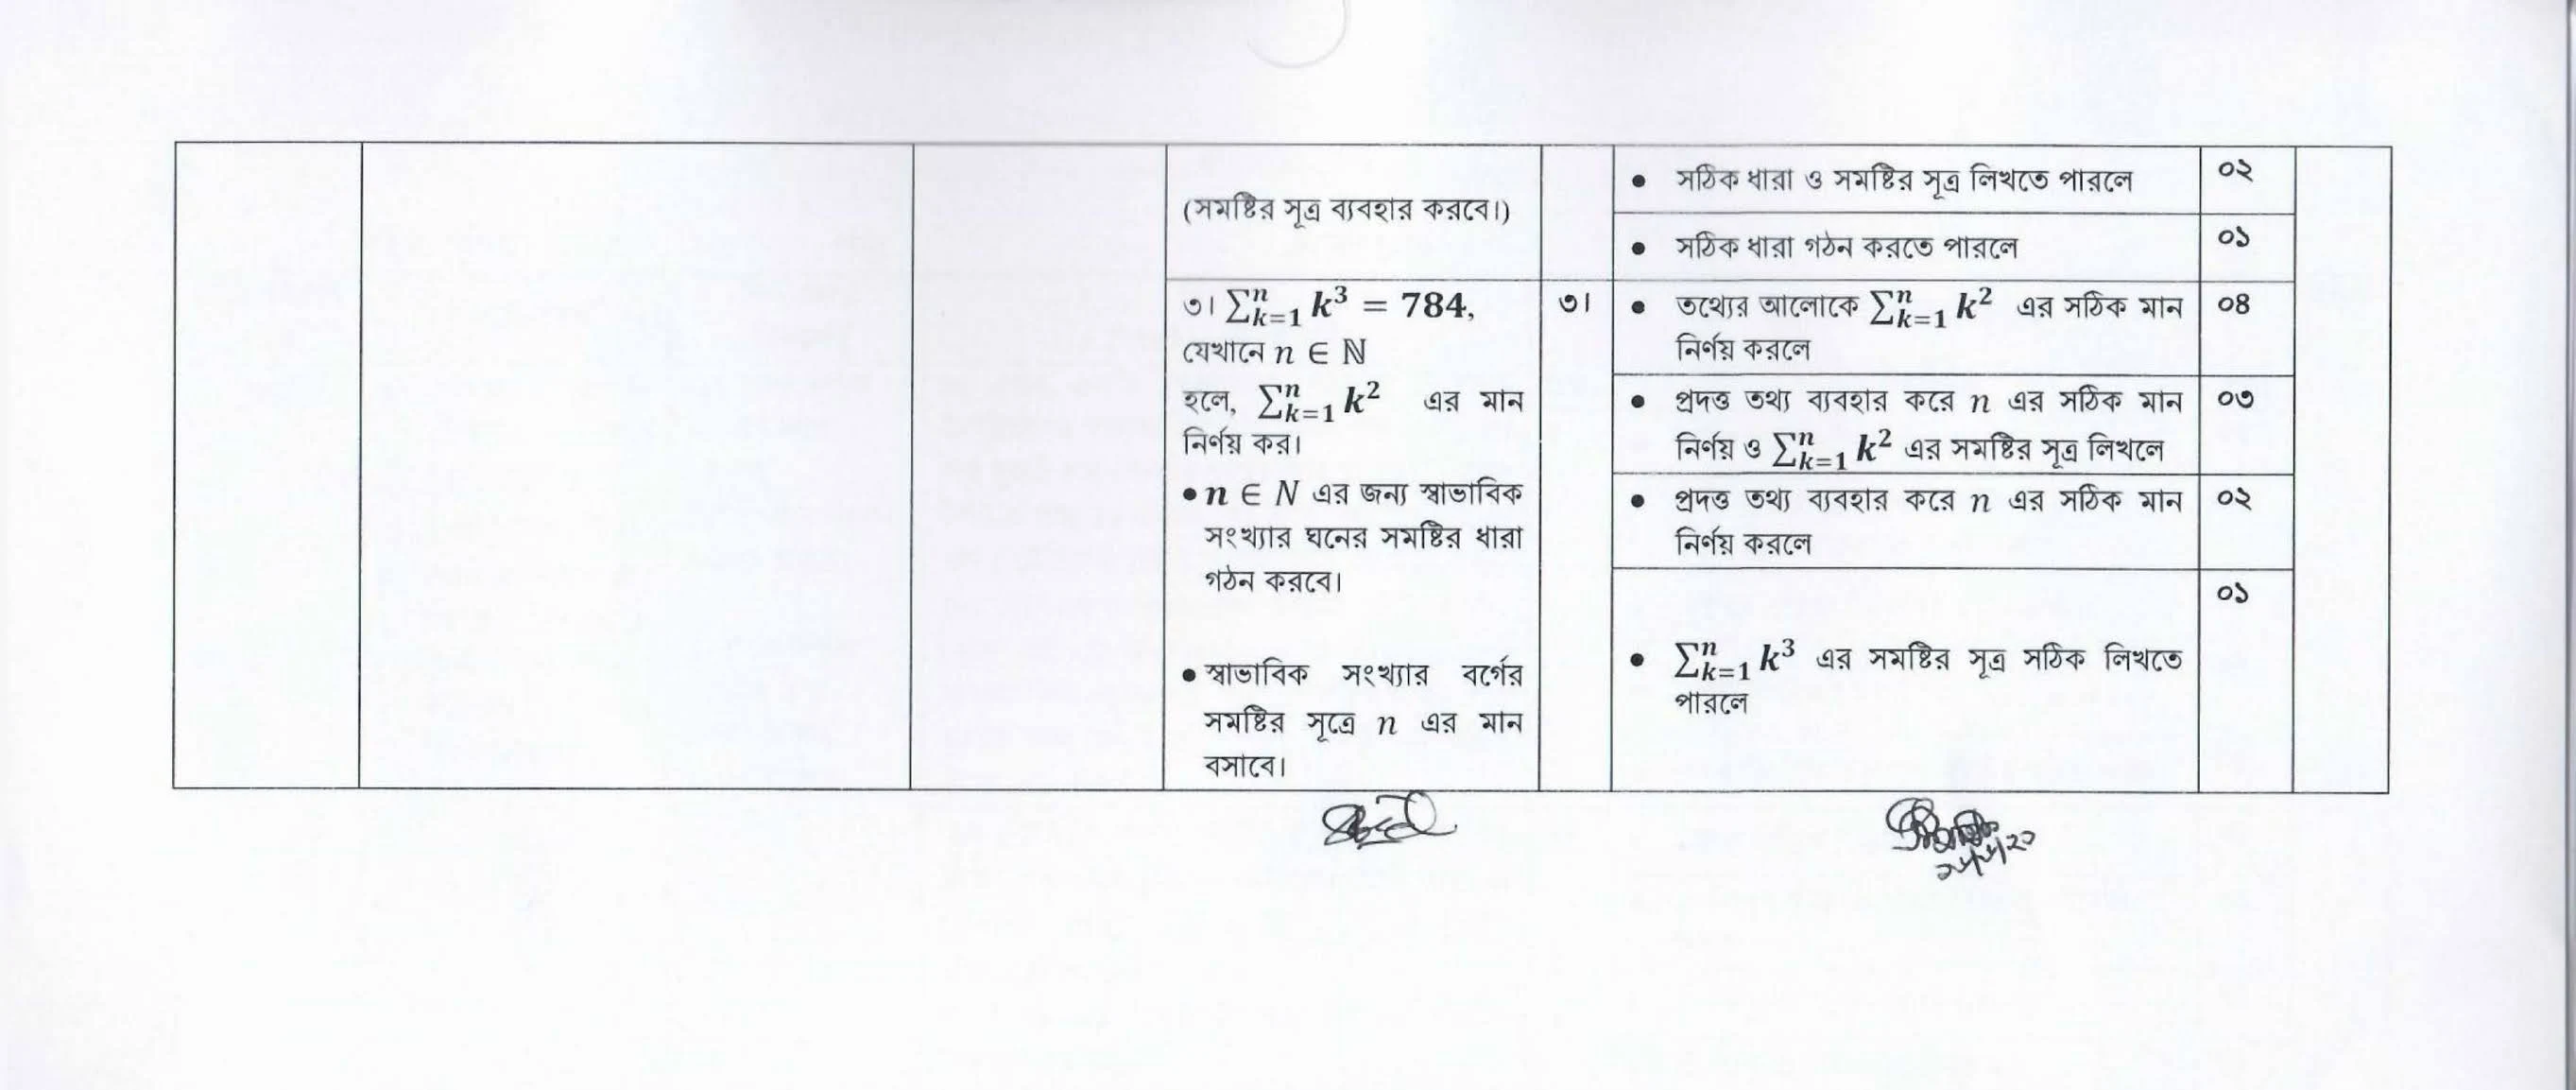 (সমষ্টির সূত্র ব্যবহার করবে।)
• সঠিক ধারা ও সমষ্টির সূত্র লিখতে পারলে
০২
• সঠিক ধারা গঠন করতে পারলে
০১
৩। ∑ⁿₖ₌₁ k³ = 784,
যেখানে n ∈ ℕ
হলে, ∑ⁿₖ₌₁ k² এর মান
নির্ণয় কর।
• n ∈ N এর জন্য স্বাভাবিক
সংখ্যার ঘনের সমষ্টির ধারা
গঠন করবে।
• স্বাভাবিক সংখ্যার বর্গের
সমষ্টির সূত্রে n এর মান
বসাবে।
৩।
• তথ্যের আলোকে ∑ⁿₖ₌₁ k² এর সঠিক মান
নির্ণয় করলে
০৪
• প্রদত্ত তথ্য ব্যবহার করে n এর সঠিক মান
নির্ণয় ও ∑ⁿₖ₌₁ k² এর সমষ্টির সূত্র লিখলে
০৩
• প্রদত্ত তথ্য ব্যবহার করে n এর সঠিক মান
নির্ণয় করলে
০২
• ∑ⁿₖ₌₁ k³ এর সমষ্টির সূত্র সঠিক লিখতে
পারলে
০১